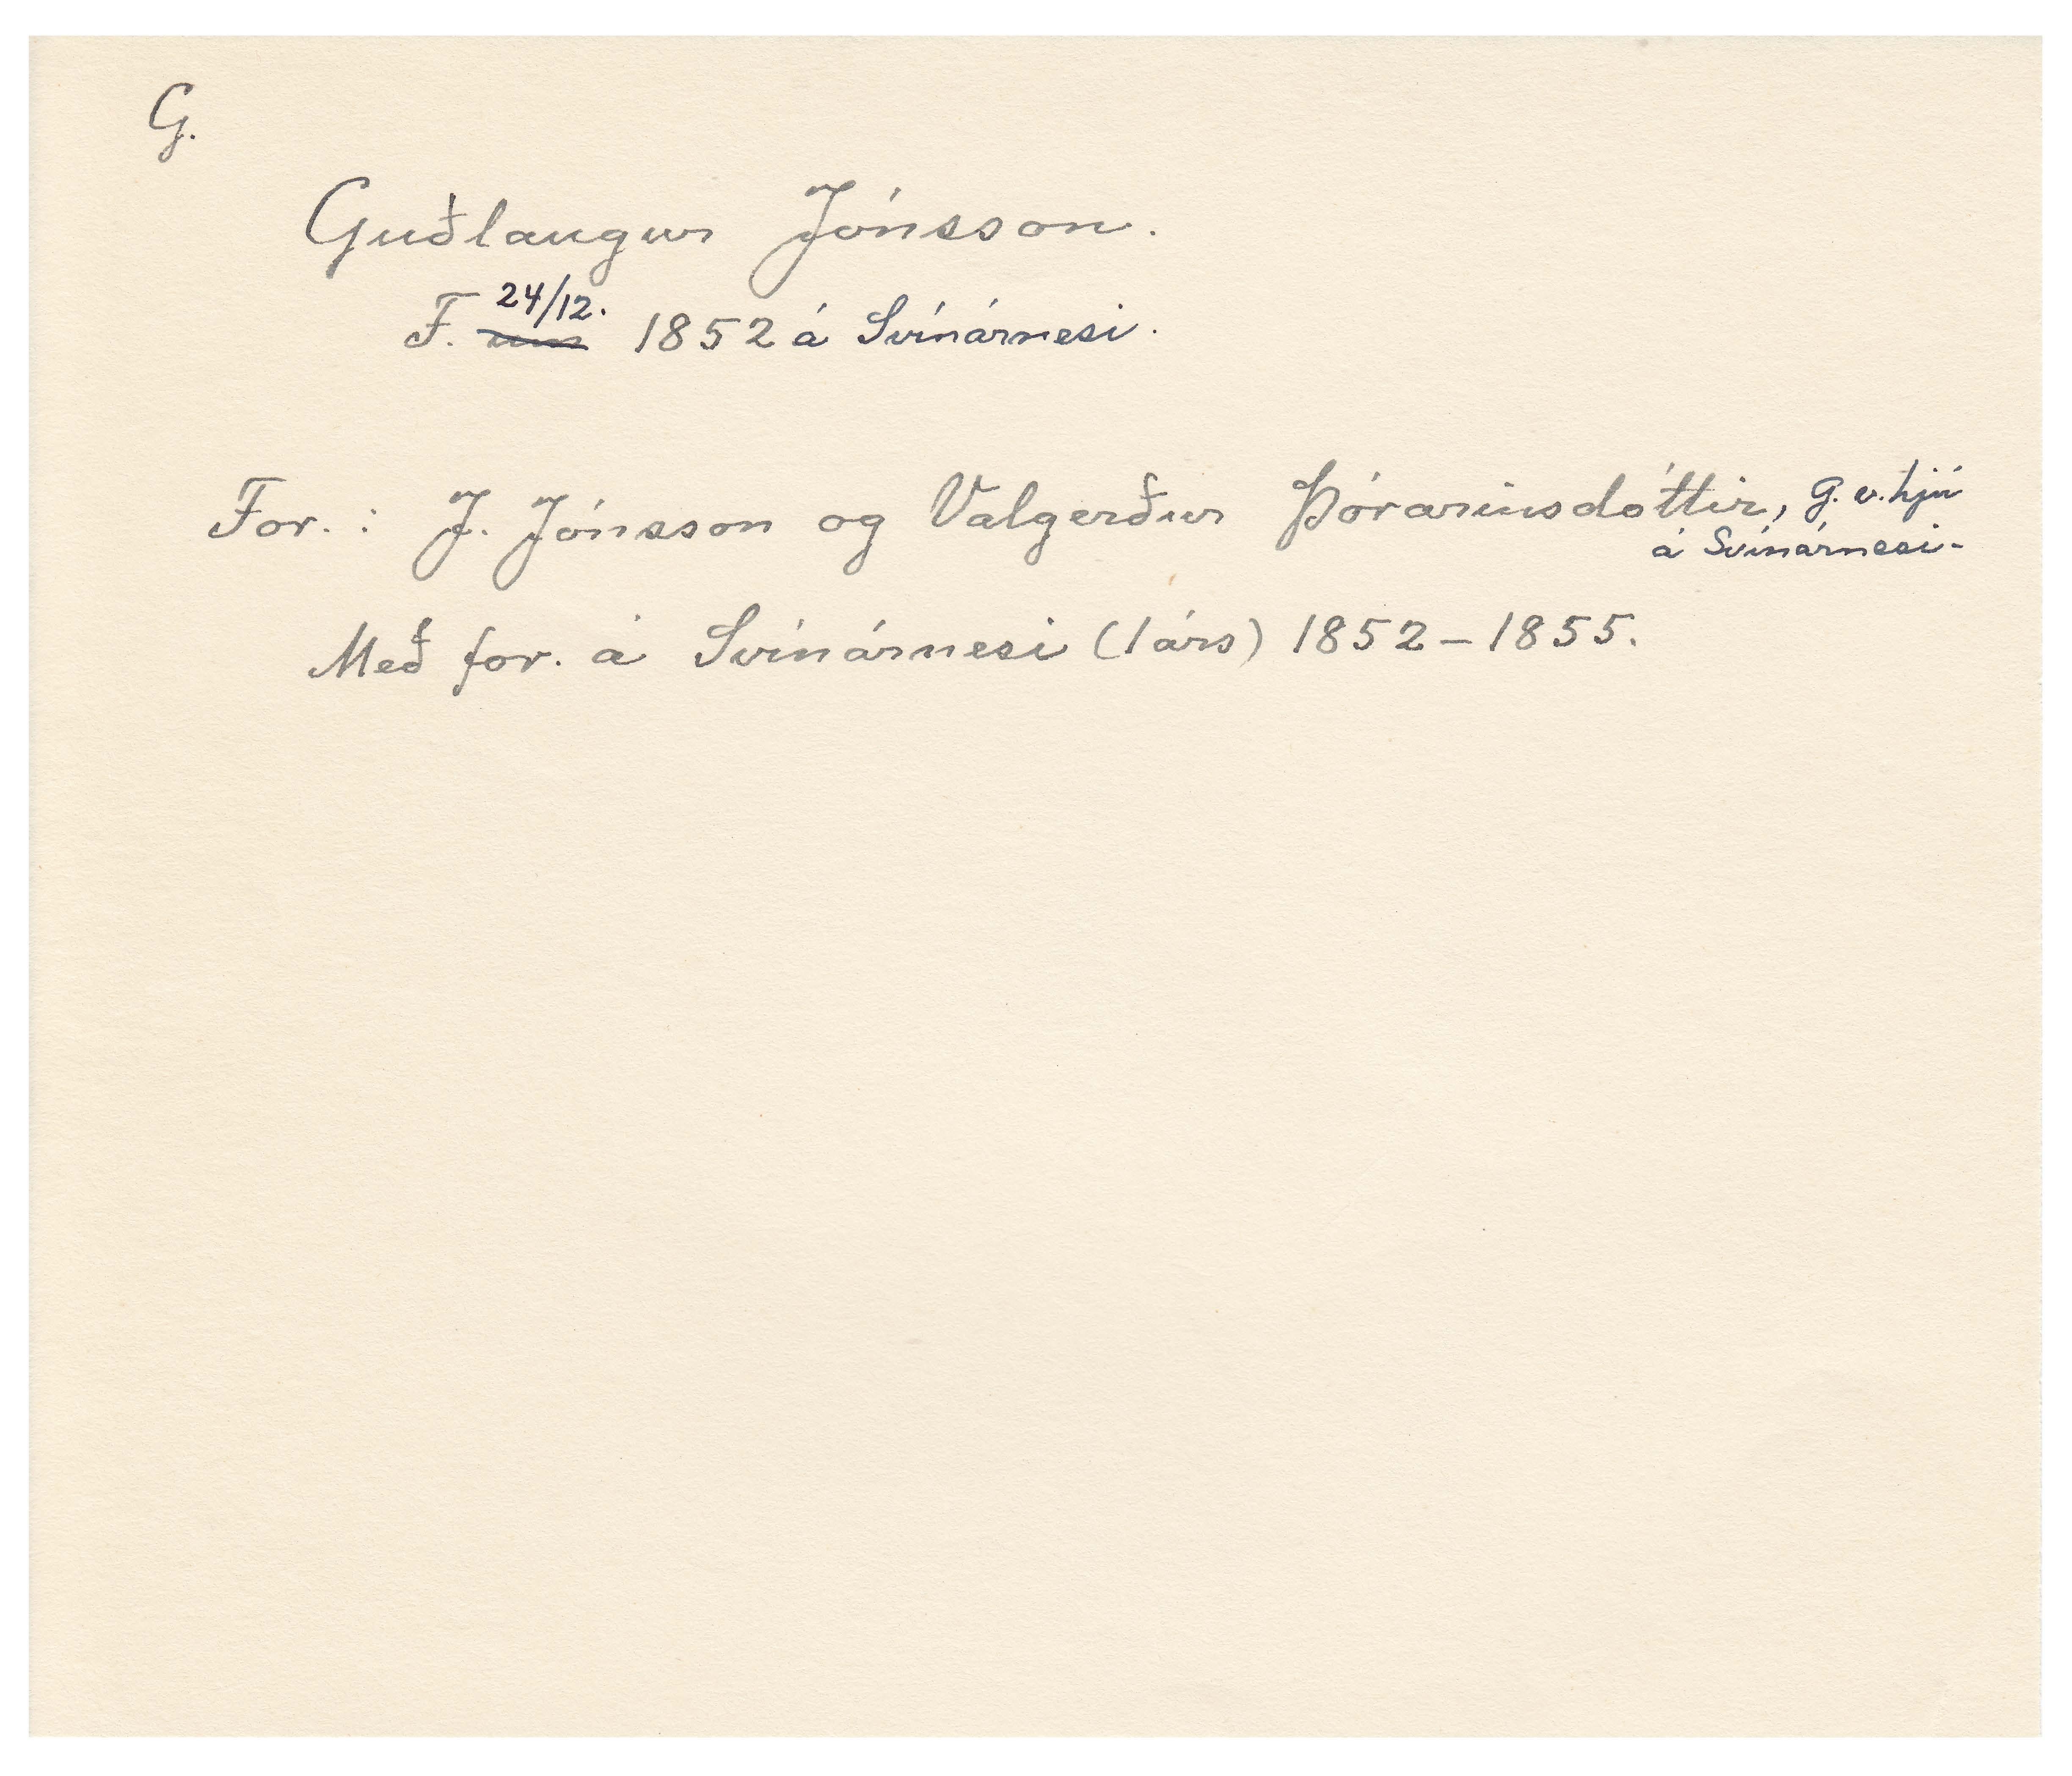 G.
Guðlaugur Jónsson.
F. ~~um~~ 24/12. 1852 á Svínárnesi.
For.: J. Jónsson og Valgerður Þórarinsdóttir, g. v. hjú
á Svínárnesi.
Með for. á Svínárnesi (1 árs) 1852 – 1855.